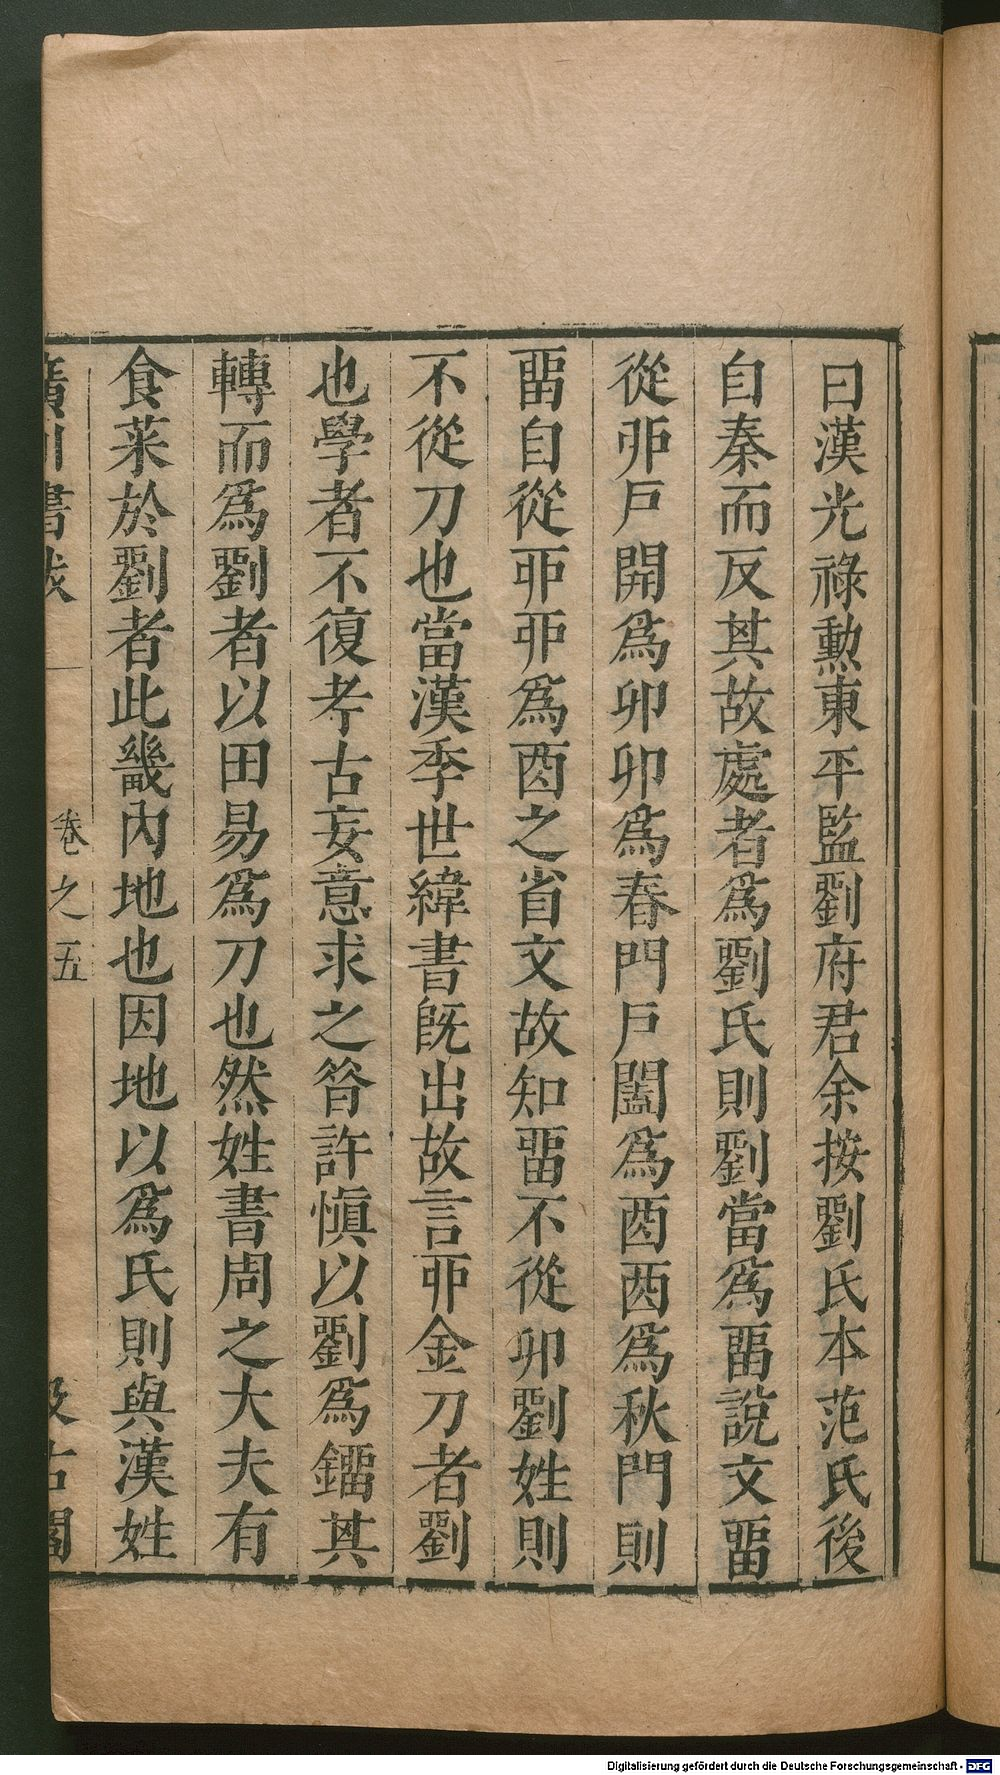 曰漢光祿勲東平監劉府君余按劉氏本范氏後
自秦而反其故處者爲劉氏則劉當爲畱說文畱
從丣戶開爲卯卯爲春門戶闔爲丣丣爲秋門則
畱自從丣丣爲酉之省文故知畱不從卯劉姓則
不從刀也當漢季世緯書旣出故言丣金刀者劉
也學者不復考古妄意求之昝許愼以劉爲鐂其
轉而爲劉者以田易爲刀也然姓書周之大夫有
食菜於劉者此畿內地也因地以爲氏則與漢姓
廣川書跋 卷之五 汲古閣
Digitalisierung gefördert durch die Deutsche Forschungsgemeinschaft - DFG